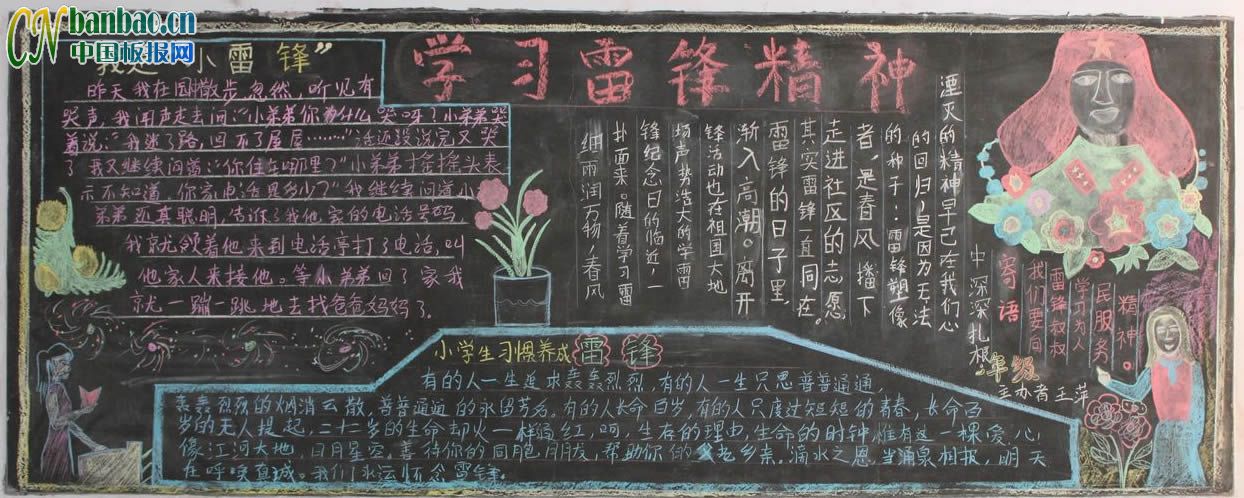 CN banbao.cn
中国板报网
学习雷锋精神
我是"小雷锋"
昨天我在园散步忽然,听见有
哭声,我闻声走去问:"小弟弟你为什么哭呀?小弟弟哭
着说:"我迷了路,回不了屋屋……"话还没说完又哭
了我又继续问道:"你住在哪里?"小弟弟摇摇头表
示不知道.你家电话是多少?"我继续问道小
弟弟还算聪明,告诉了我他家的电话号码
我就领着他来到电话亭打了电话,叫
他家人来接他。等小弟弟回了家我
就一蹦一跳地去找爸爸妈妈了.
细雨润万物,春风
扑面来。随着学习雷
锋纪念日的临近,一
场声势浩大的学雷
锋活动也在祖国大地
渐入高潮。离开
雷锋的日子里,
其实雷锋一直同在。
走进社区的志愿
者,是春风播下
的种子:雷锋塑像
的回归,是因为无法
湮灭的精神早已在我们心
中深深扎根
寄语
我们要向
雷锋叔叔
学习为人
民服务
精神。
年级
主办者王萍
小学生习惯养成雷锋
有的人一生追求轰轰烈烈,有的人一生只思普普通通,
轰轰烈烈的烟消云散,普普通通的永留芳名。有的人长命百岁,有的人只度过短短的青春,长命百
岁的无人提起,二十二岁的生命却火一样通红,呵,生存的理由,生命的时钟,惟有这一棵爱心,
像江河大地,日月星空,善待你的同胞朋友,帮助你的父老乡亲。滴水之恩,当涌泉相报,明天
在呼唤真诚。我们永远怀念雷锋.